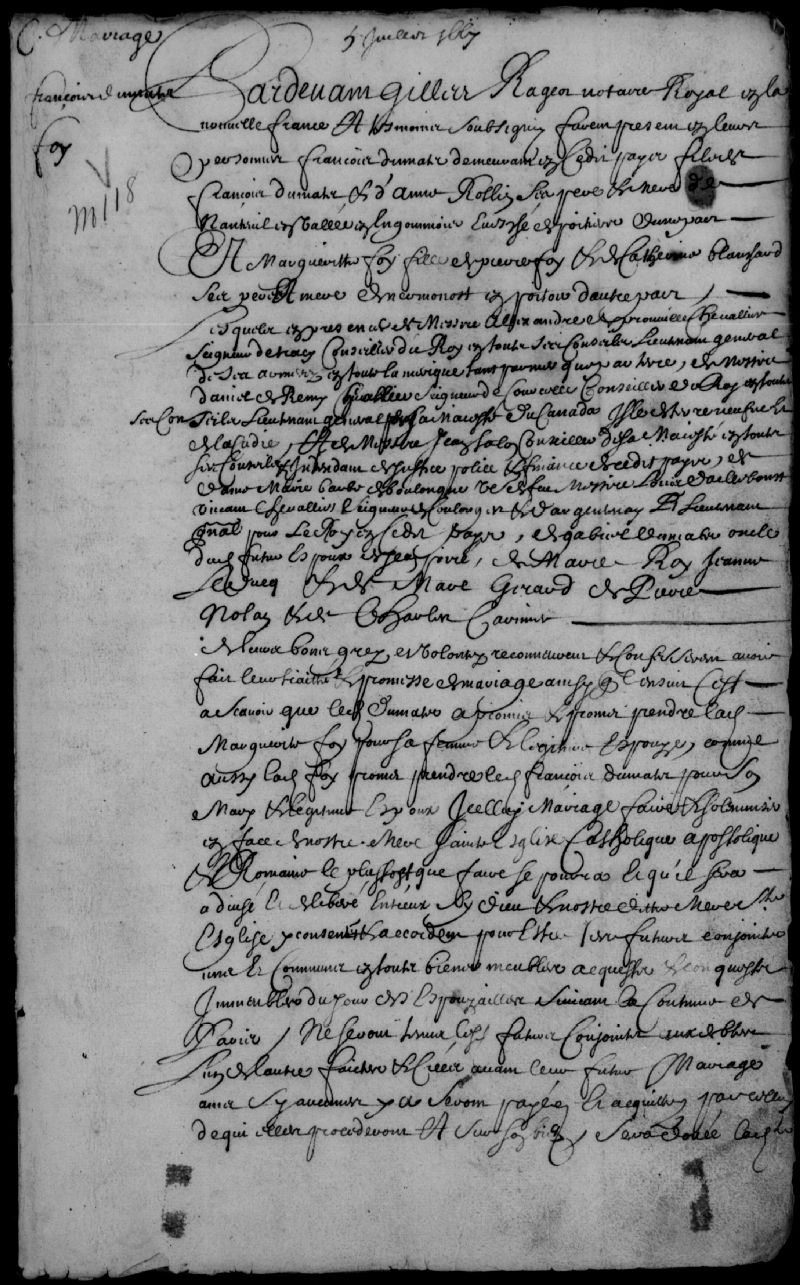 C. Mariage
5 Juillet 1667
françois dumats
foy
m 118
Pardevant gilles Rageot notaire Royal en la
nouvelle france Et tesmoins soubsignez furent presens en leurs
personnes françois dumats demeurant en Cedit pays filz de
françois dumats & d'anne Rollin ses pere & mere de
Nanteuil en Vallée en Engoumois Evesché de poitiers d'une part
Et Margueritte foy fille de pierre foy & de Catherine blanchard
ses pere Et mere de en poitou d'autre part
Lesquels en presence de Messire Alexandre de prouville Chevallier
Seigneur de tracy Conseiller du Roy en tous ses Conseils Lieutenant general
de ses armées en toute lamerique tant par mer que par terre, de Messire
daniel de Remy Chevallier Seigneur de Courcelle Conseiller du Roy en tous
ses Con seils Lieutenant general pour sa Majesté du Canada Isle de terre neufve Et
de lacadie, Et de Messire Jean talon Conseiller de sa Majesté en tous
ses Conseils Intendant de justice police & finance de cedit pays, de
dame Marie barbe de boulongne veufve de feu Messire Louis d'ailleboust
vivant Chevallier Seigneur de Coulonges & d'argentenay Lieutenant
gñal pour Le Roy en Cedit pays, de gabriel dumats oncle
dud. futur Espoux de Marie Roy Jeanne
Leducq & de Marc Girard de Pierre
Nolan & de Charles
de leurs bons grez et volontez reconnurent & Confesserent avoir
fait leur traitté & promesse de mariage ainsy q̃l ensuit C'est
a scavoir que led. dumats a promis & promet prendre lad.
Marguerite foy pour sa femme & legitime Espouze, comme
aussy lad. foy promet prendre led. françois dumats pour son
Mary & legitime Espoux Icelluy Mariage faire & solemniser
en face de nostre Mere Sainte Esglise Catholique apostolique
& Romaine le plustost que faire se pourra Et qu'il sera
advisé Et deliberé Entreux sy dieu & nostre ditte Mere Ste
Esglise y consentent & accordent pour Estre les futurs conjoints
uns Et Communs en tous biens meubles acquests & conquests
Immeubles du jour de Espouzailles suivant la Coutume de
Paris, Ne seront tenus lesd. futurs Conjoints aux debtes
L'un de lautre faictes & Creées avant leur futur Mariage
ains sy aucunes y a seront payées Et acquittées par celluy
de qui elles procederont Et sur son bien, sera douée lad.